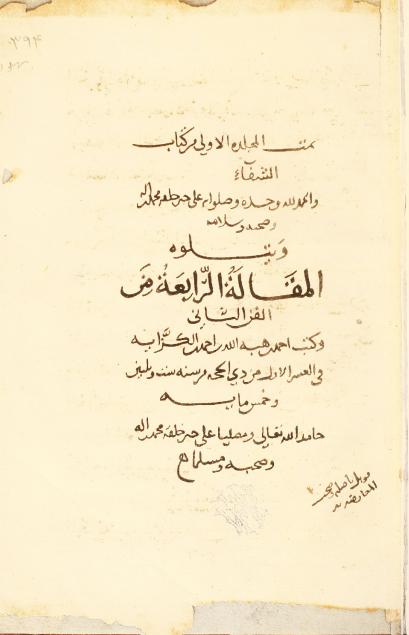 ٣٩٤
تمت المجلدة الاولى من كتاب
الشفاء
والحمد لله وحده وصلواته على خير خلقه محمد واله
وصحبه وسلامه
ويتلوه
المقالة الرابعة من
الفن الثاني
وكتب احمد بن هبة الله بن احمد
في العشر الاول من ذي الحجة من سنة ست وثلثين
وخمس مايه
حامدا لله تعالى ومصليا على خير خلقه محمد واله
وصحبه ومسلما
قوبل باصله وصحت
المعارضة به